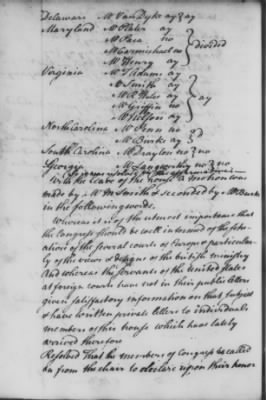 Delaware Mr Van Dyke ay } ay
Maryland Mr Plater ay
Mr Paca no } divided
Mr Carmichael no
Mr Henry ay
Virginia Mr T Adams ay
Mr Smith ay
Mr Griffin no } ay
Mr Nelson ay
North Carolina Mr Penn no } d
Mr Burke ay
South Carolina Mr Drayton no } no
Georgia Mr Langworthy no } no
With the leave of the house a motion was
made by Mr M Smith & seconded by Mr Burke
in the following words.
Whereas it is of the utmost importance that
the Congress should be well informed of the situ-
ation of the several courts of Europe & particular
ly of the views & designs of the british ministry
And whereas the servants of the United States
at foreign courts have not in their public letters
given satisfactory information on that subject
& have written private letters to individuals
members of this house which have lately
arrived therefore
Resolved That the members of Congress be called
on from the chair to declare upon their honor